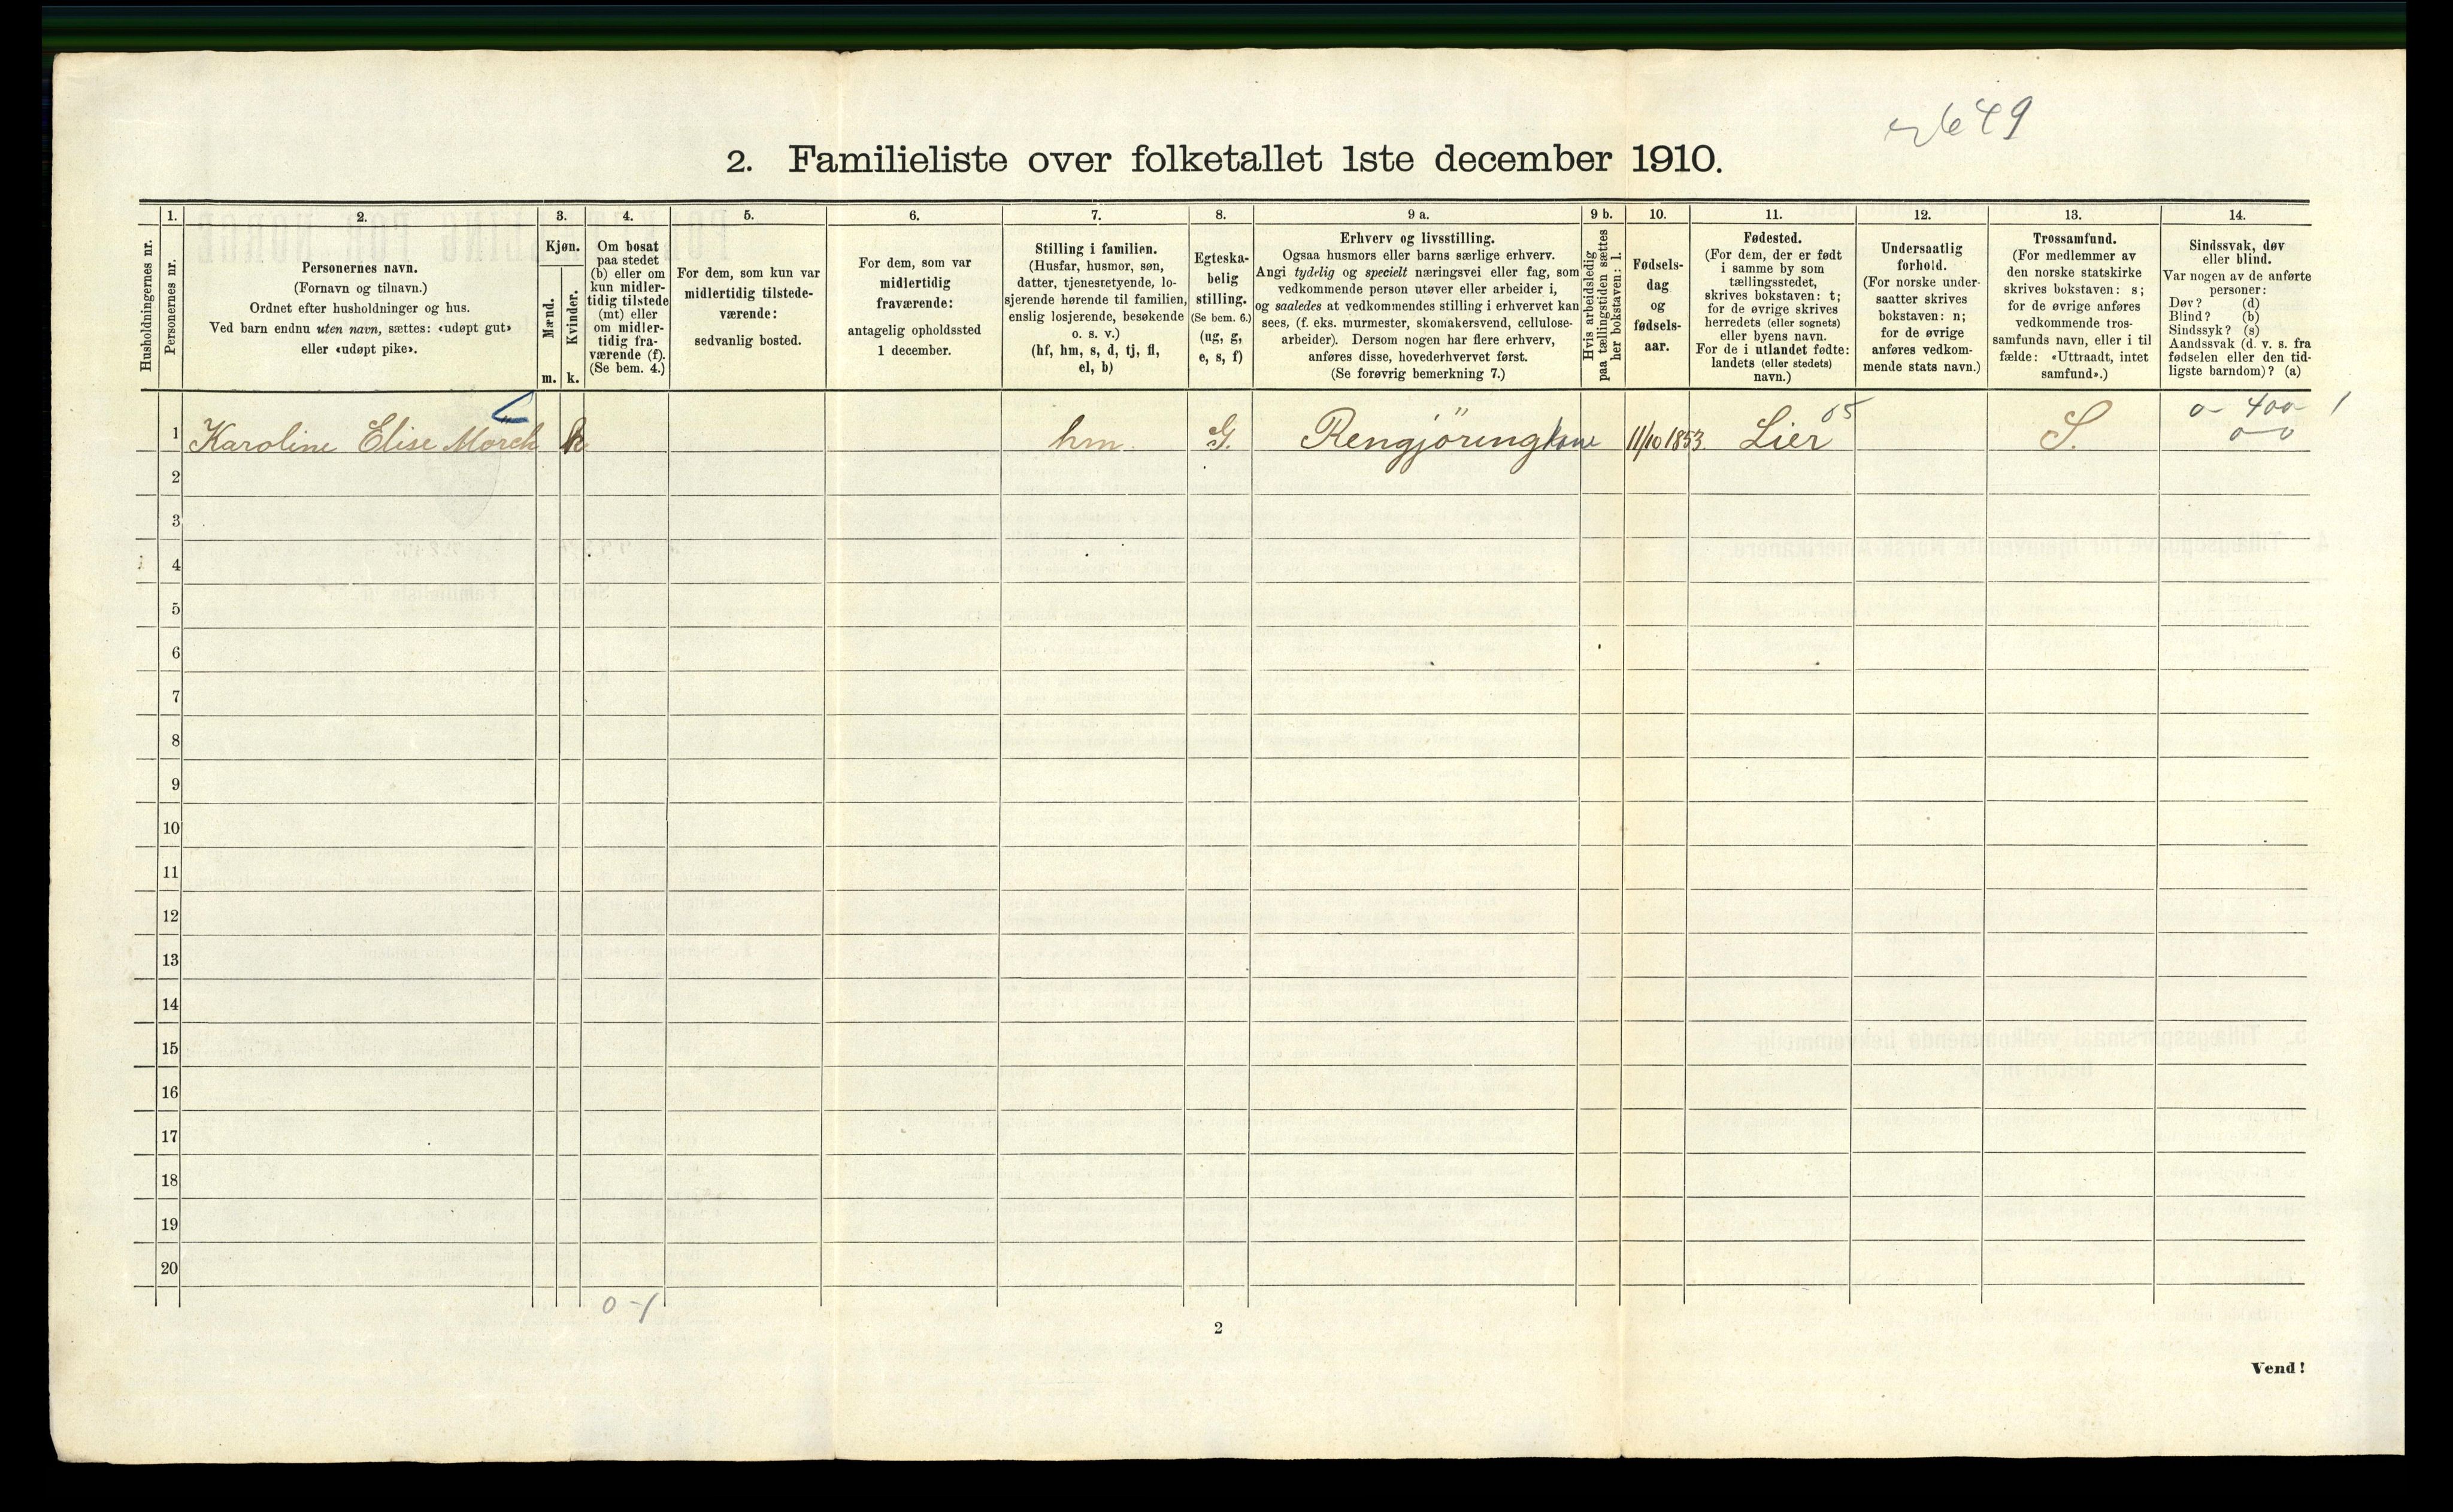 649
2. Familieliste over folketallet 1ste december 1910.
Husholdningernes nr.
1.
Personernes nr.
2.
Personernes navn.
(Fornavn og tilnavn.)
Ordnet efter husholdninger og hus.
Ved barn endnu uten navn, sættes: «udøpt gut»
eller «udøpt pike».
3.
Kjøn.
Mænd.
m.
Kvinder.
k.
4.
Om bosat
paa stedet
(b) eller om
kun midler-
tidig tilstede
(mt) eller
om midler-
tidig fra-
værende (f).
(Se bem. 4.)
5.
For dem, som kun var
midlertidig tilstede-
værende:
sedvanlig bosted.
6.
For dem, som var
midlertidig
fraværende:
antagelig opholdssted
1 december.
7.
Stilling i familien.
(Husfar, husmor, søn,
datter, tjenestetyende, lo-
sjerende hørende til familien,
enslig losjerende, besøkende
o. s. v.)
(hf, hm, s, d, tj, fl,
el, b)
8.
Egteska-
belig
stilling.
(Se bem. 6.)
(ug, g,
e, s, f)
9 a.
Erhverv og livsstilling.
Ogsaa husmors eller barns særlige erhverv.
Angi tydelig og specielt næringsvei eller fag, som
vedkommende person utøver eller arbeider i,
og saaledes at vedkommendes stilling i erhvervet kan
sees, (f. eks. murmester, skomakersvend, cellulose-
arbeider). Dersom nogen har flere erhverv,
anføres disse, hovederhvervet først.
(Se forøvrig bemerkning 7.)
9 b.
Hvis arbeidsledig
paa tællingstiden sættes
her bokstaven: l.
10.
Fødsels-
dag
og
fødsels-
aar.
11.
Fødested.
(For dem, der er født
i samme by som
tællingsstedet,
skrives bokstaven: t;
for de øvrige skrives
herredets (eller sognets)
eller byens navn.
For de i utlandet fødte:
landets (eller stedets)
navn.)
12.
Undersaatlig
forhold.
(For norske under-
saatter skrives
bokstaven: n;
for de øvrige
anføres vedkom-
mende stats navn.)
13.
Trossamfund.
(For medlemmer av
den norske statskirke
skrives bokstaven: s;
for de øvrige anføres
vedkommende tros-
samfunds navn, eller i til
fælde: «Uttraadt, intet
samfund».)
14.
Sindssvak, døv
eller blind.
Var nogen av de anførte
personer:
Døv? (d)
Blind? (b)
Sindssyk? (s)
Aandssvak (d. v. s. fra
fødselen eller den tid-
ligste barndom)? (a)
05 0- 400- 1
1 Karoline Elise Morch k hm. G. Rengjöringkone 11/10 1853. Lier S. 0-0
2
3
4
5
6
7
8
9
10
11
12
13
14
15
16
17
18
19
20
0-1
2
Vend!